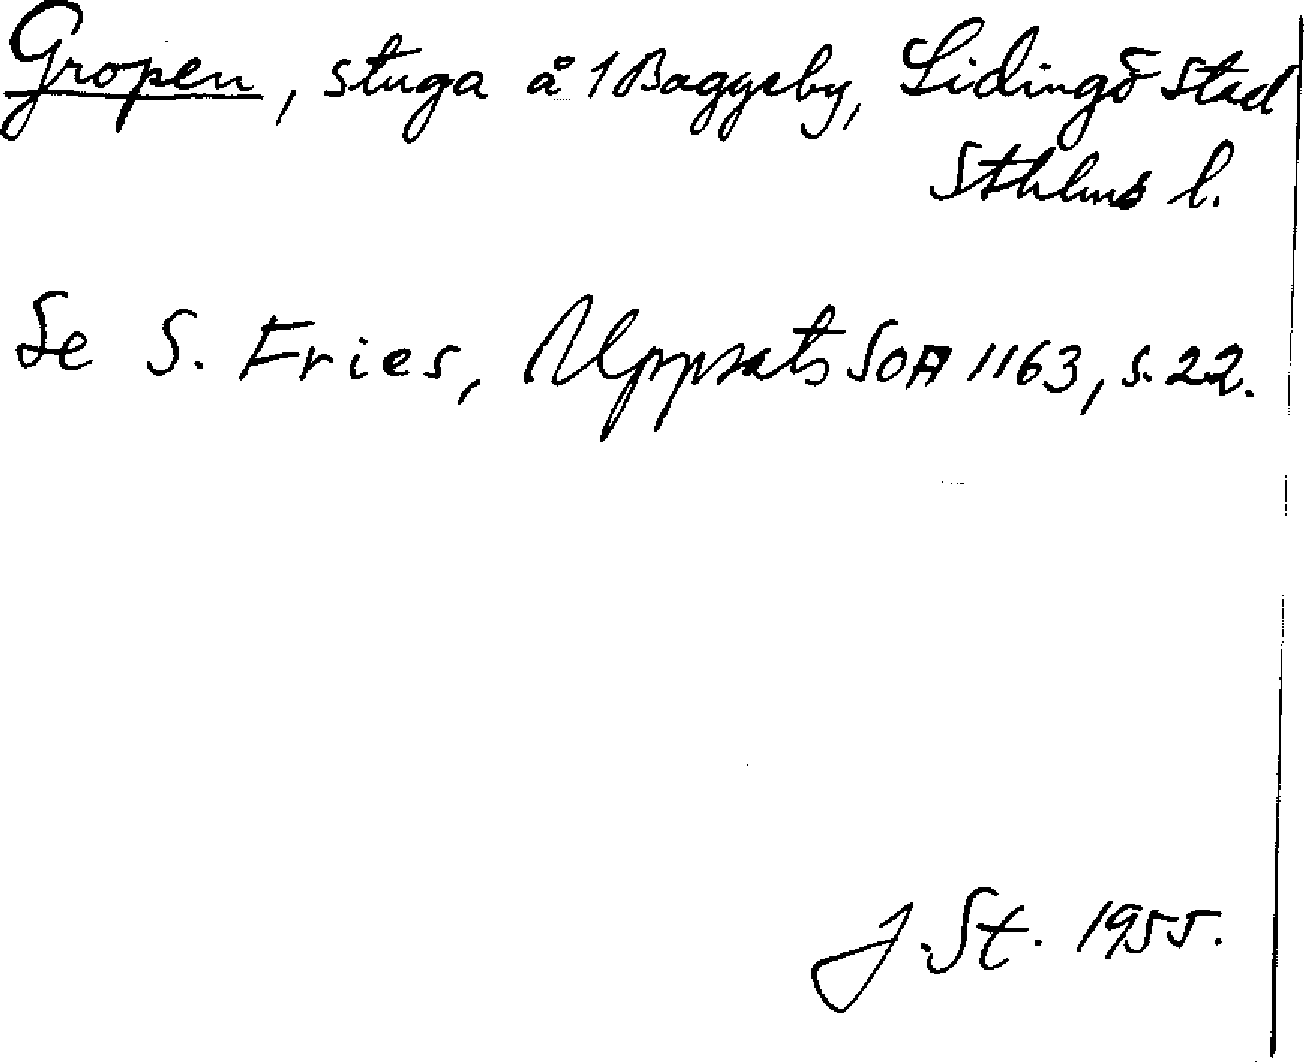 Gropen, stuga å 1 Baggeby, Lidingö stad
Sthlms l.
Se S. Fries, Uppsats SOA 1163, s. 22.
J. St. 1955.